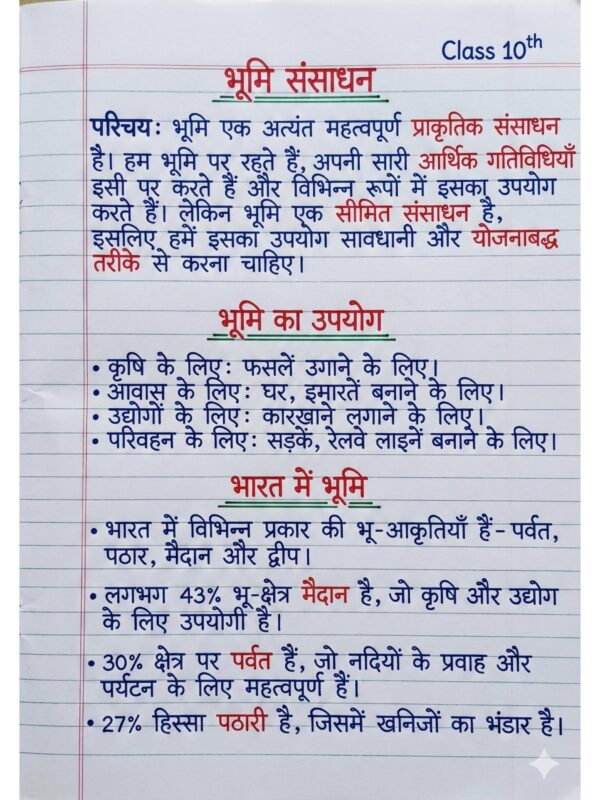 Class 10th
भूमि संसाधन
परिचय: भूमि एक अत्यंत महत्वपूर्ण प्राकृतिक संसाधन
है। हम भूमि पर रहते हैं, अपनी सारी आर्थिक गतिविधियाँ
इसी पर करते हैं और विभिन्न रूपों में इसका उपयोग
करते हैं। लेकिन भूमि एक सीमित संसाधन है,
इसलिए हमें इसका उपयोग सावधानी और योजनाबद्ध
तरीके से करना चाहिए।
भूमि का उपयोग
• कृषि के लिए: फसलें उगाने के लिए।
• आवास के लिए: घर, इमारतें बनाने के लिए।
• उद्योगों के लिए: कारखाने लगाने के लिए।
• परिवहन के लिए: सड़कें, रेलवे लाइनें बनाने के लिए।
भारत में भूमि
• भारत में विभिन्न प्रकार की भू-आकृतियाँ हैं - पर्वत,
पठार, मैदान और द्वीप।
• लगभग 43% भू-क्षेत्र मैदान है, जो कृषि और उद्योग
के लिए उपयोगी है।
• 30% क्षेत्र पर पर्वत हैं, जो नदियों के प्रवाह और
पर्यटन के लिए महत्वपूर्ण हैं।
• 27% हिस्सा पठारी है, जिसमें खनिजों का भंडार है।